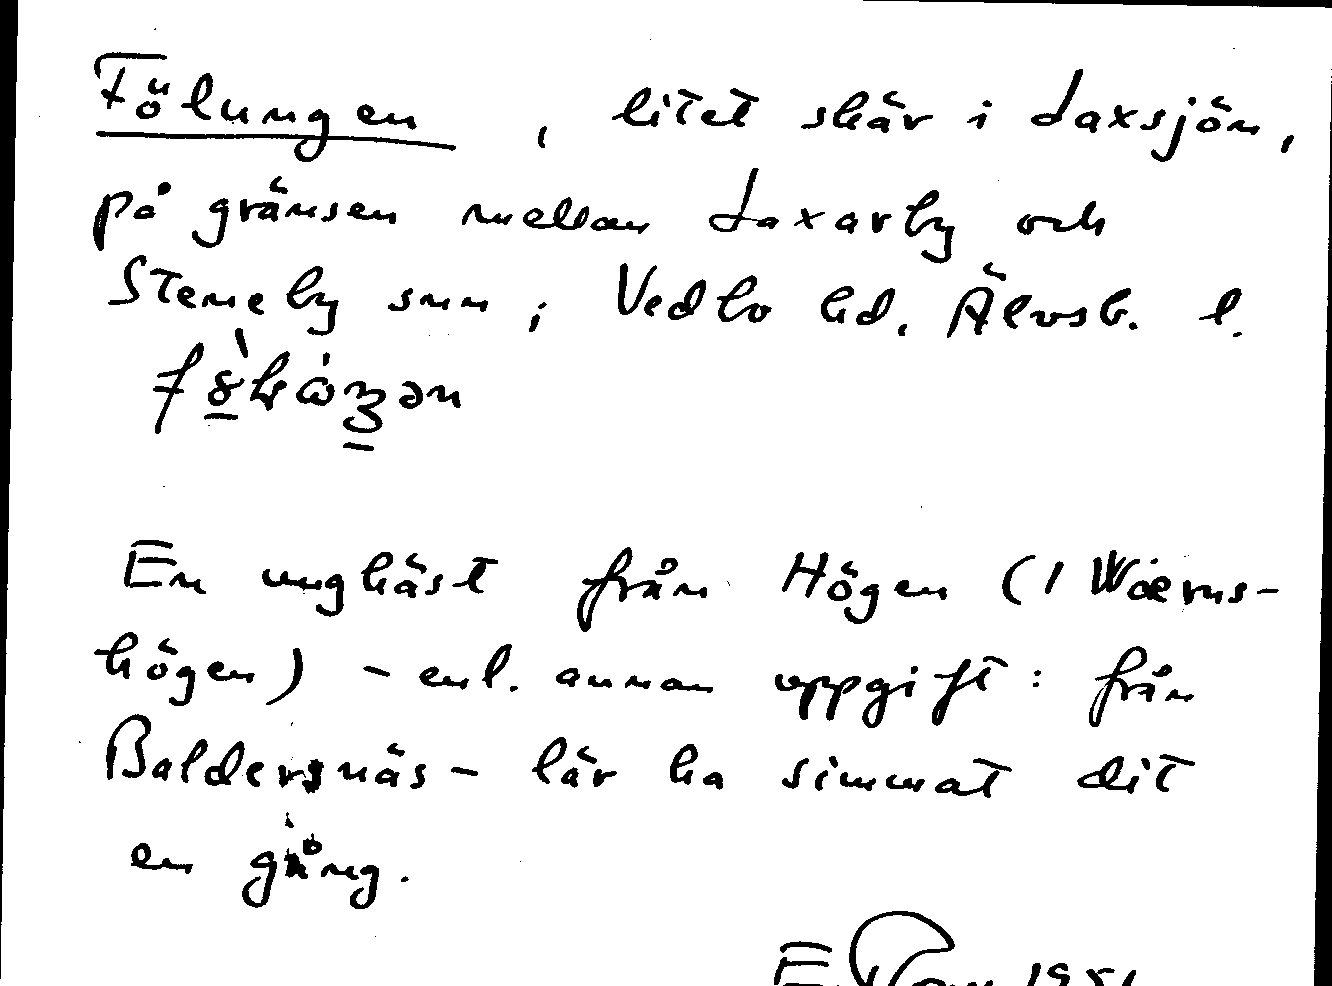 Fölungen , litet skär i Laxsjön,
på gränsen mellan Laxarby och
Steneby snn ; Vedbo hd. Älvsb. l.
En unghäst från Högen (/ Wærns-
högen) - enl. annan uppgift : från
Baldersnäs - lär ha simmat dit
en gång.
E.